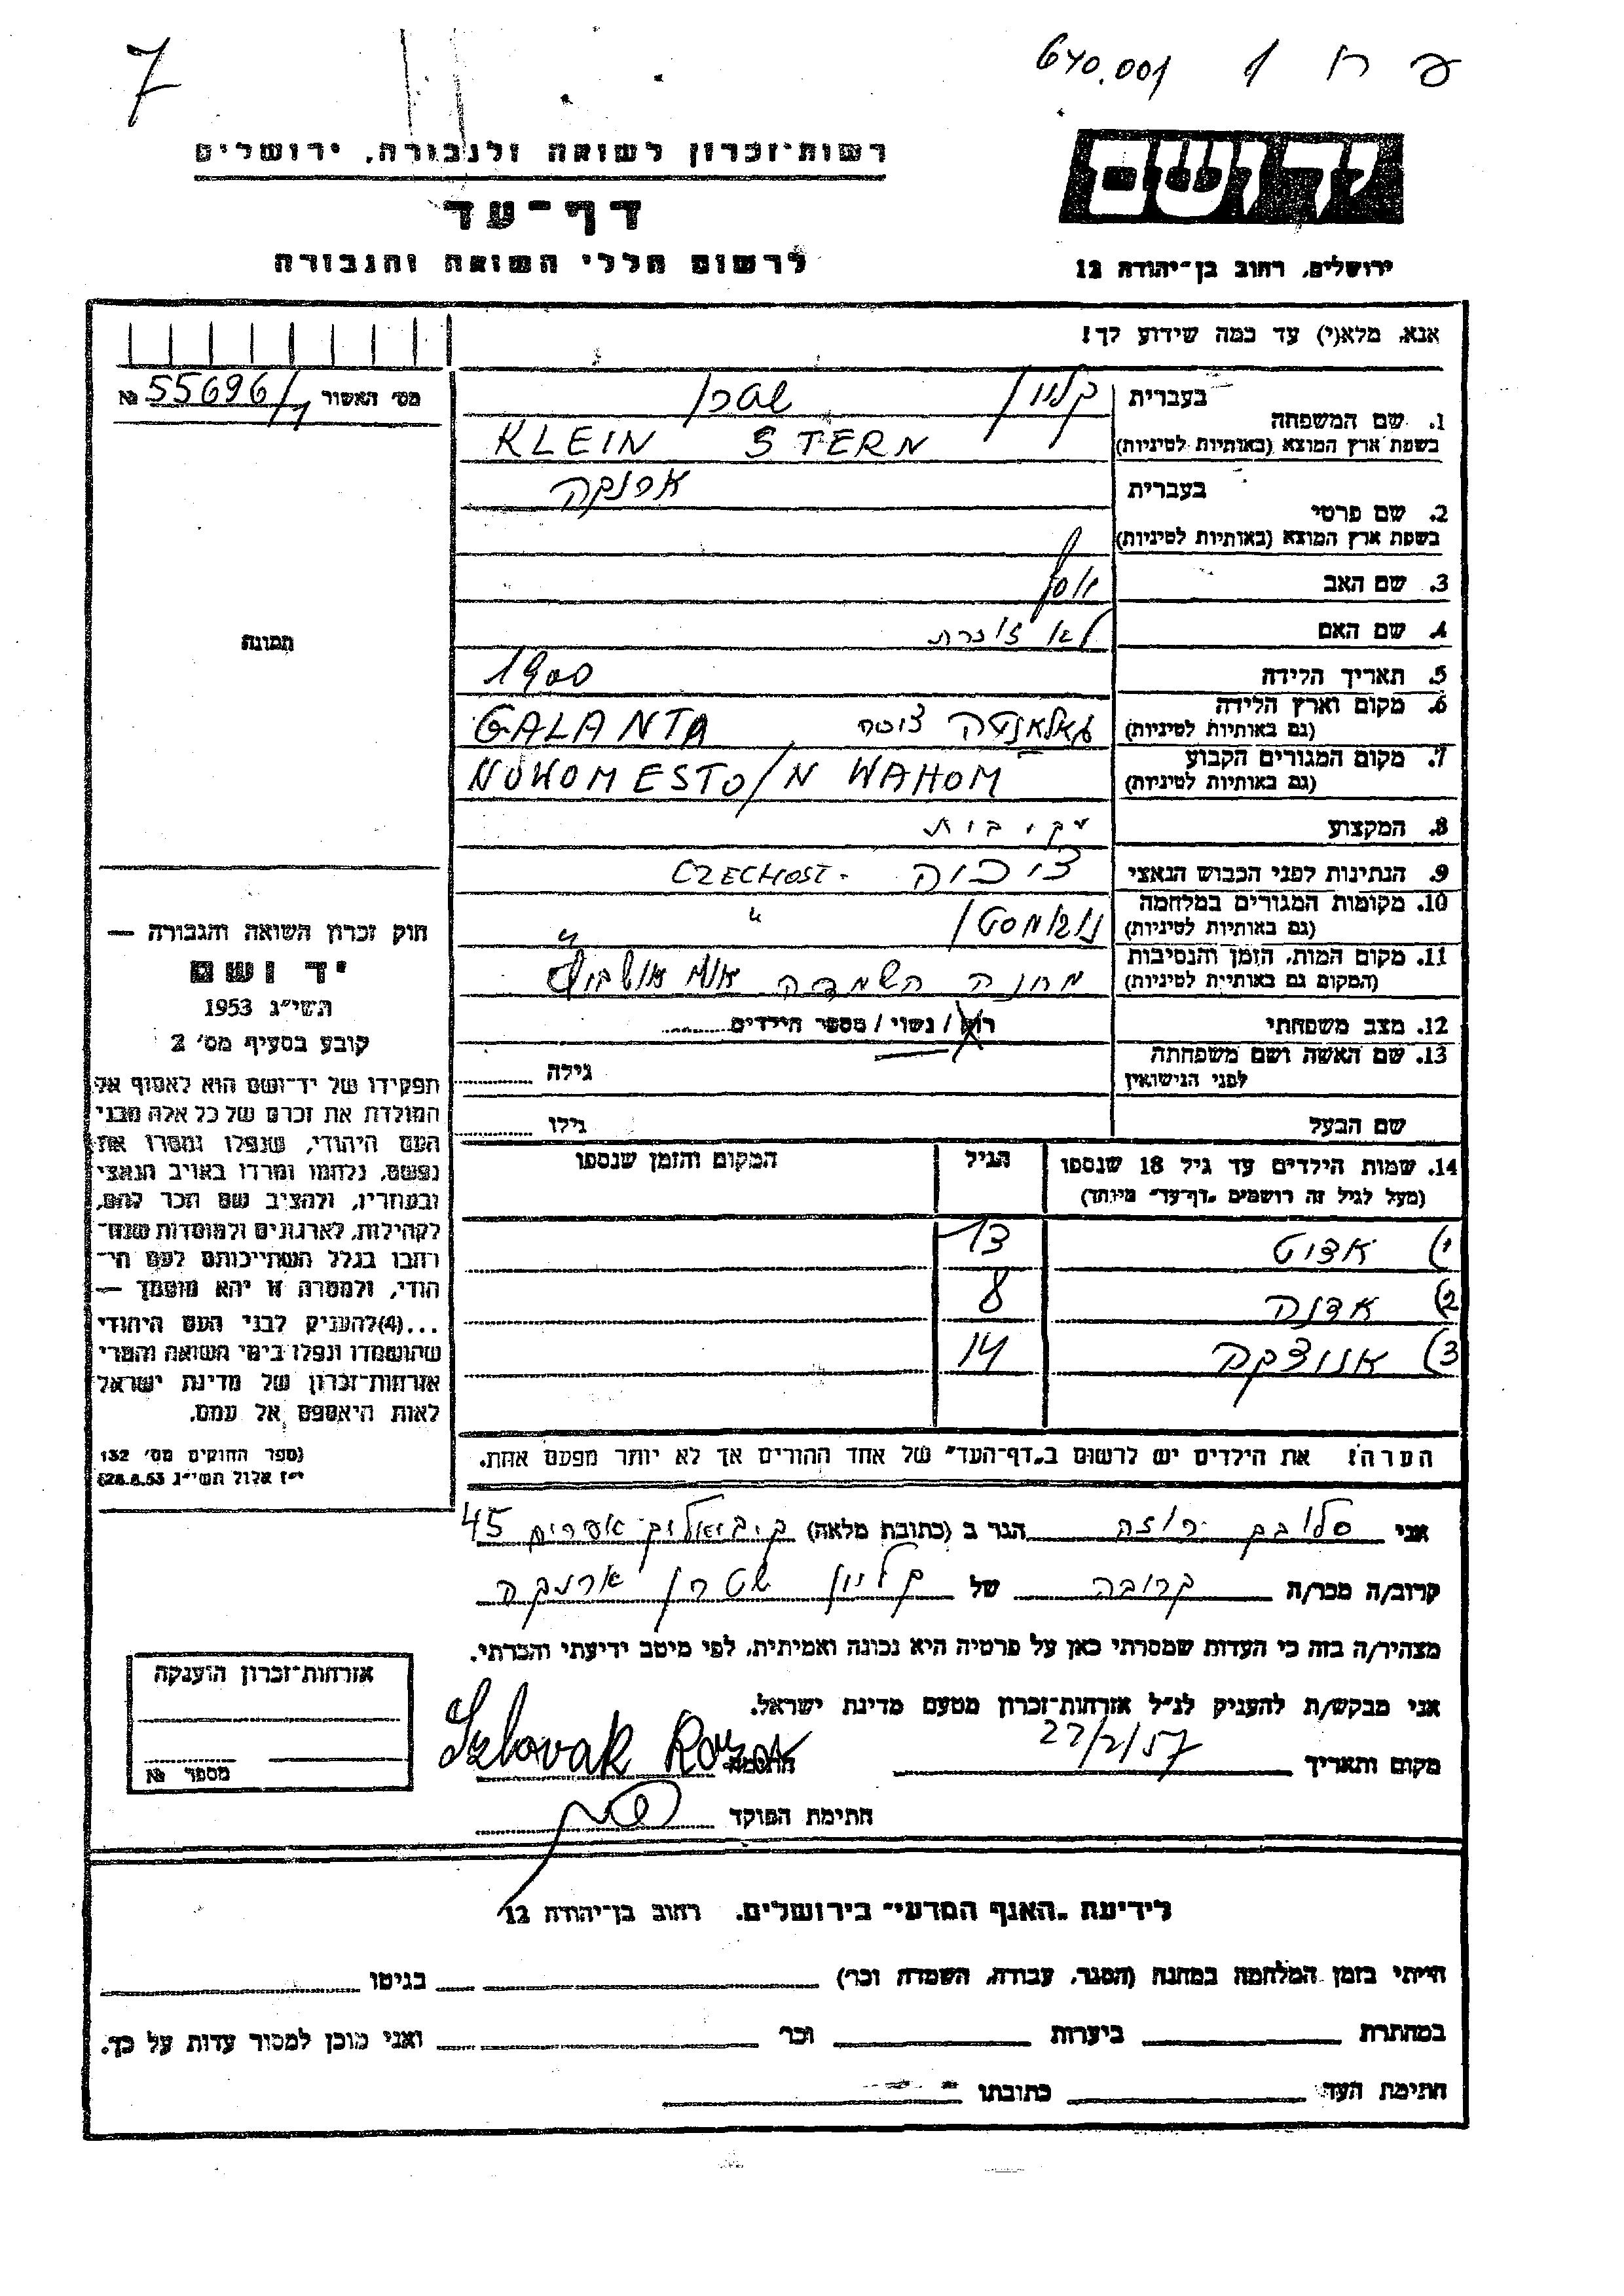 7
670.001 1 ח פ
יד ושם
רשות-זכרון לשואה ולגבורה, ירושלים
דף-עד
לרשום חללי השואה והגבורה
ירושלים, רחוב בן-יהודה 12
אנא, מלא(י) עד כמה שידוע לך!
מס׳ האשור № 55696/1
1. שם המשפחה
בעברית קליין שטרן
בשפת ארץ המוצא (באותיות לטיניות) KLEIN STERN
2. שם פרטי
בעברית ארנקה
בשפת ארץ המוצא (באותיות לטיניות)
3. שם האב יוסף
4. שם האם לא זוכרת
5. תאריך הלידה 1900
6. מקום וארץ הלידה (גם באותיות לטיניות) גאלאנטה צ׳וכיה GALANTA
7. מקום המגורים הקבוע (גם באותיות לטיניות) NOHOMESTO/N WAHOM
8. המקצוע עקיבות
9. הנתינות לפני הכבוש הנאצי צ׳וכיה - CZECHOST
10. מקומות המגורים במלחמה (גם באותיות לטיניות) "
11. מקום המות, הזמן והנסיבות (המקום גם באותיות לטיניות) מחנה השמדה אושביץ
12. מצב משפחתי רווק / נשוי / מספר הילדים
13. שם האשה ושם משפחתה לפני הנישואין גילה
שם הבעל גילו
14. שמות הילדים עד גיל 18 שנספו הגיל המקום והזמן שנספו
(מעל לגיל זה רושמים "דף-עד" מיוחד)
1) אדיט 13
2) אדנה 8
3) אנוצקה 14
הערה: את הילדים יש לרשום ב"דף-העד" של אחד ההורים אך לא יותר מפעם אחת.
תמונה
חוק זכרון השואה והגבורה —
יד ושם
תשי״ג 1953
קובע בסעיף מס׳ 2
תפקידו של יד-ושם הוא לאסוף אל
המולדת את זכרם של כל אלה מבני
העם היהודי, שנפלו ומסרו את
נפשם, נלחמו ומרדו באויב הנאצי
ובעוזריו, ולהציב שם וזכר להם,
לקהילות, לארגונים ולמוסדות שנח-
רבו בגלל השתייכותם לעם הי-
הודי, ולמטרה זו יהא מוסמך —
...(4)להעניק לבני העם היהודי
שהושמדו ונפלו בימי השואה והמרי
אזרחות-זכרון של מדינת ישראל
לאות היאספם אל עמם.
(ספר החוקים מס׳ 132
י״ז אלול תשי״ג 28.8.53)
אני סלובק רוזה הגר ב (כתובת מלאה) 45
קרוב/ה מכר/ה קרובה של קליין שטרן ארנקה
מצהיר/ה בזה כי העדות שמסרתי כאן על פרטיה היא נכונה ואמיתית, לפי מיטב ידיעתי והכרתי.
אני מבקש/ת להעניק לנ״ל אזרחות-זכרון מטעם מדינת ישראל.
מקום ותאריך 22/2/57 החתימה Szlovak Roza
חתימת הפוקד
אזרחות-זכרון הוענקה
מספר №
לידיעת "האגף המדעי" בירושלים, רחוב בן-יהודה 12
הייתי בזמן המלחמה במחנה (הסגר, עבודה, השמדה וכו׳) בגיטו
במחתרת ביערות וכו׳ ואני מוכן למסור עדות על כך.
חתימת העד כתובתו